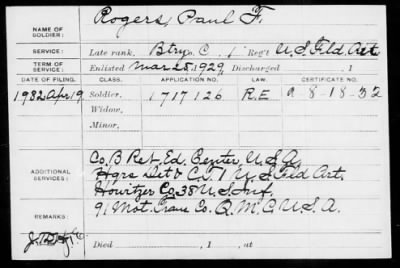 NAME OF SOLDIER: Rogers, Paul F.
SERVICE: Late rank, Btry C, 1 Reg't U.S. Fild Art
TERM OF SERVICE: Enlisted Mar 25, 1929, Discharged , 1
DATE OF FILING. CLASS. APPLICATION NO. LAW. CERTIFICATE NO.
1932 Apr 19 Soldier, 1717126 R.E. 9-8-18-32
Widow,
Minor,
ADDITIONAL SERVICES: Co. B Ret. Ed. Center, U.S.A.
Hqrs Det & C. 1 U.S. Fld Art.
Howitzer Co. 38 U.S. Inf.
91 Mot. Trans Co. Q.M.C. U.S.A.
REMARKS:
Died , 1 , at